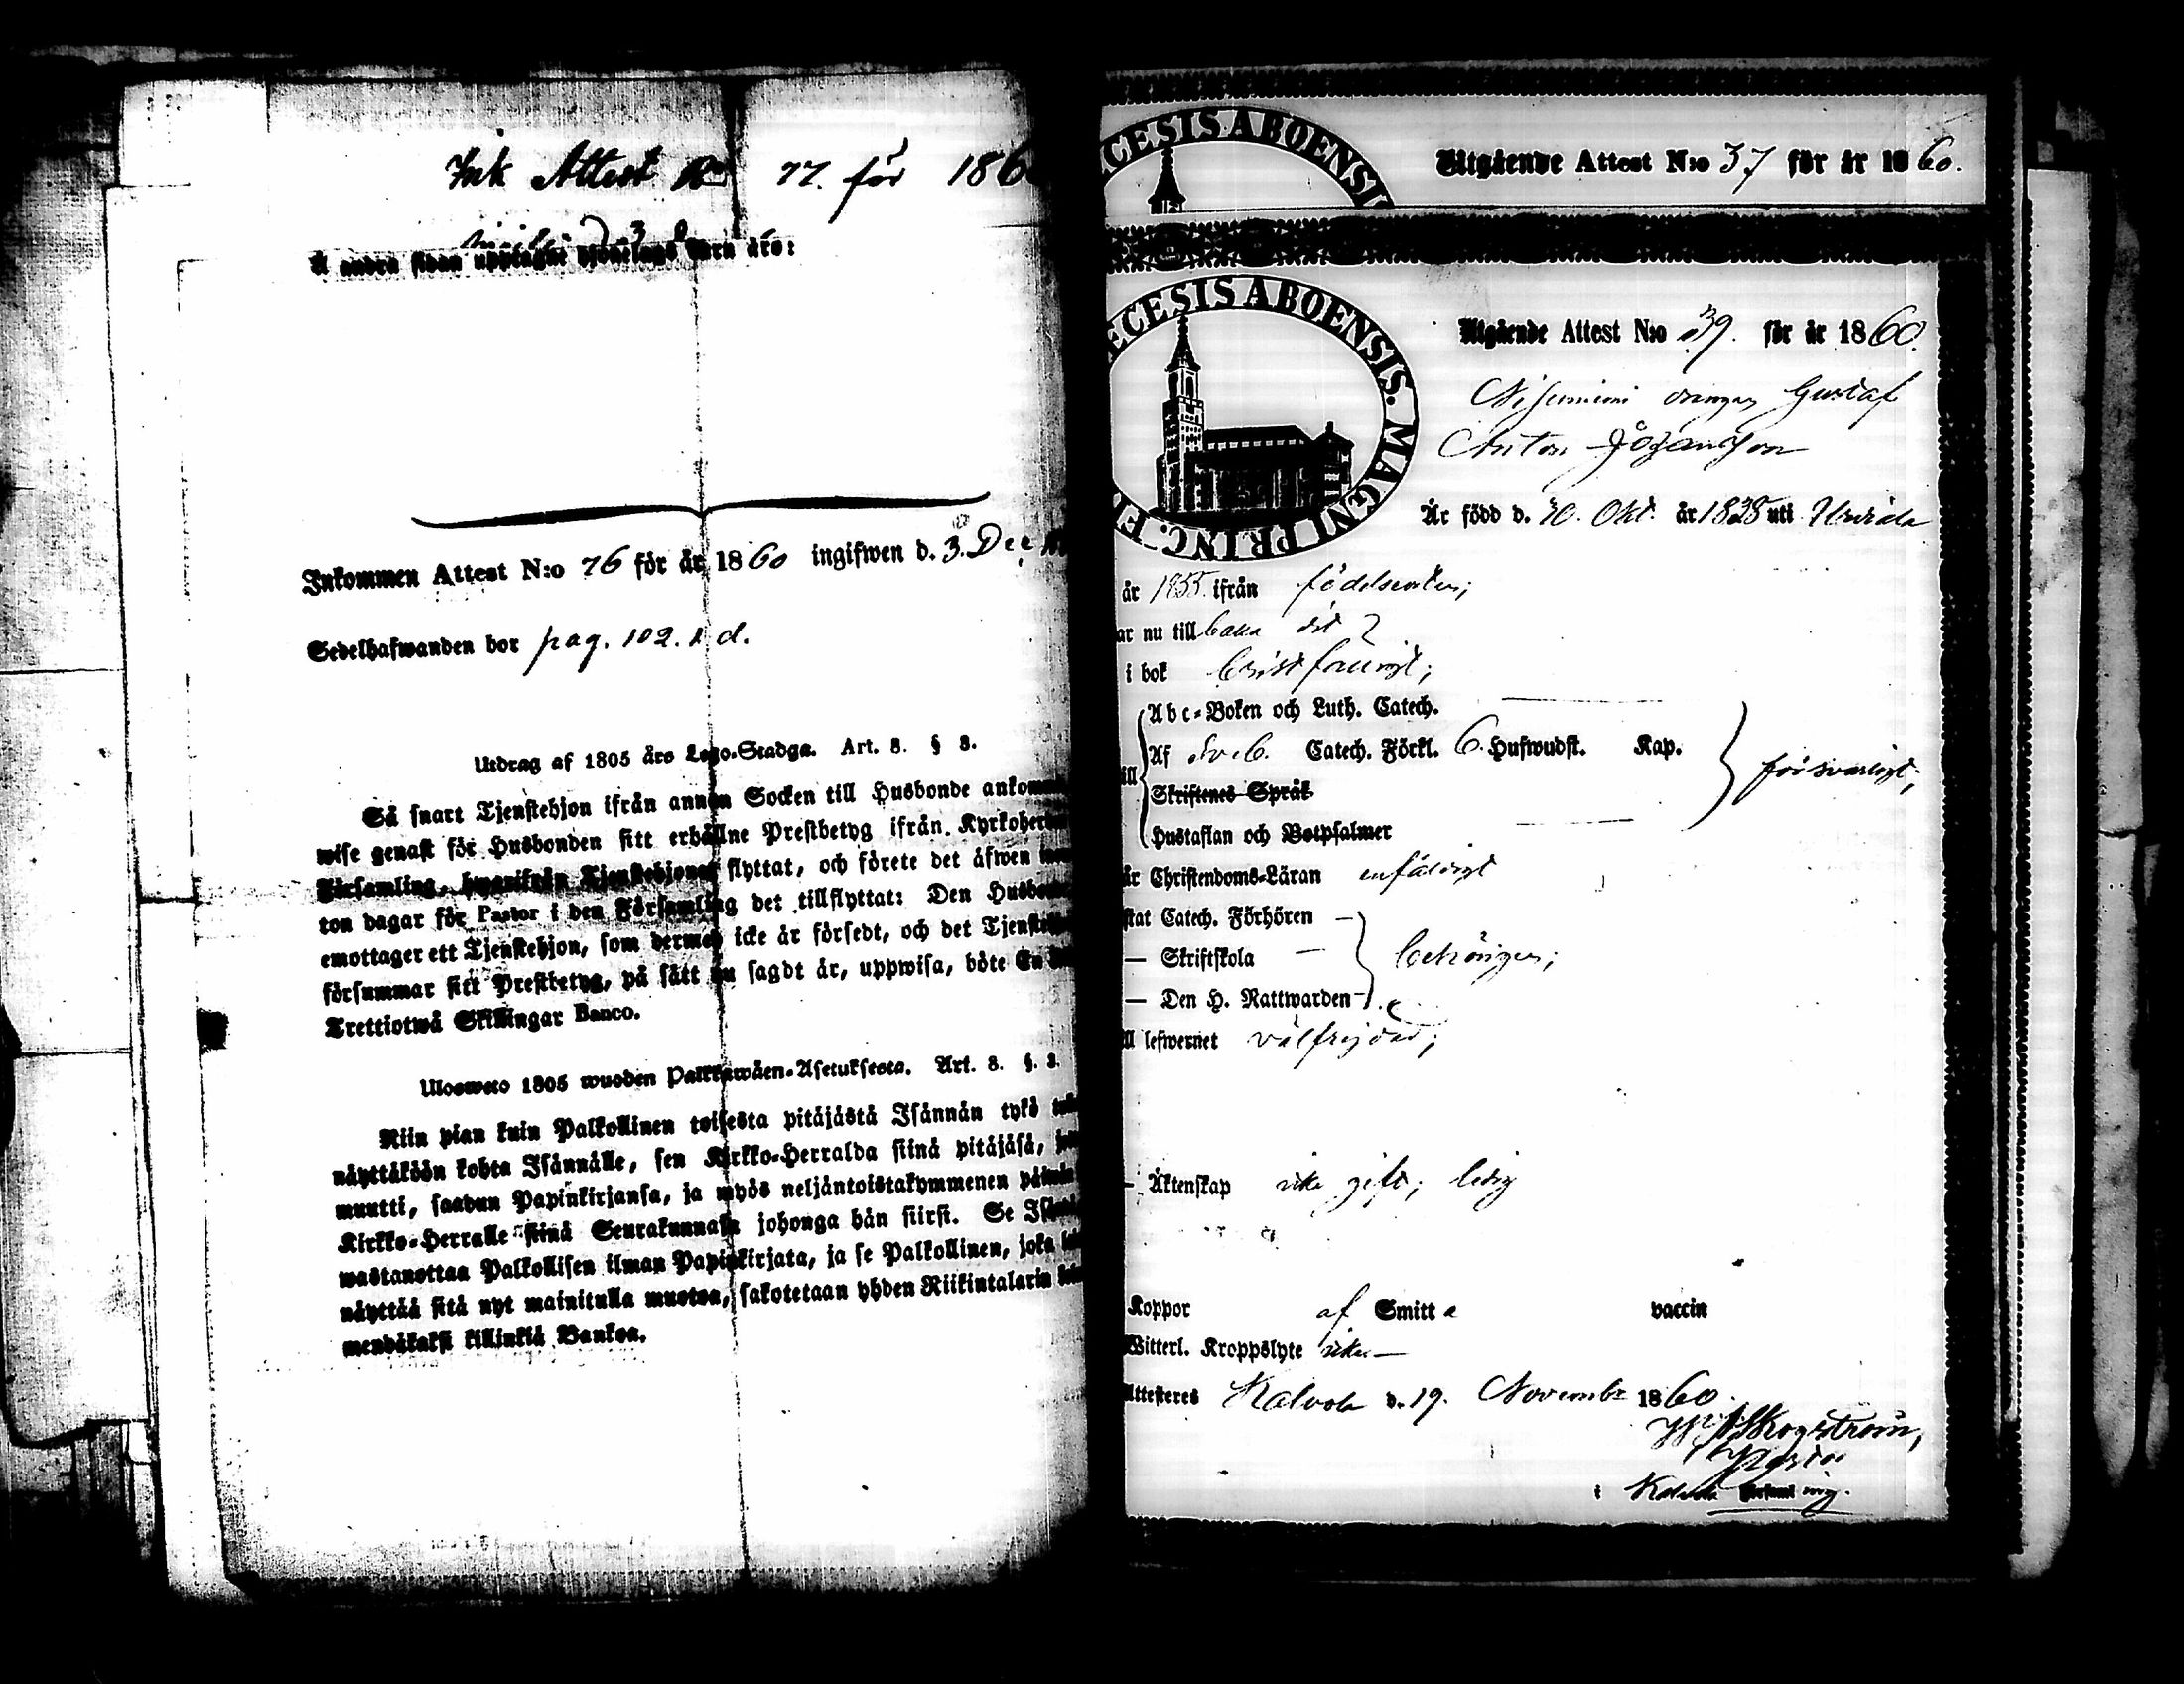 Ink Attest No 77. för 186
Å andra sidan upptagne tjenstehjons barn äro:
Inkommen Attest N:o 76 för år 1860 ingifwen d. 3. Dec
Sedelhafwanden bor pag. 102. 1 d.
Utdrag af 1805 års Lego-Stadga. Art. 8. § 3.
Så snart Tjenstehjon ifrån annan Socken till Husbonde ankom
wise genast för Husbonden sitt erhållne Prestbetyg ifrån Kyrkoher
Församling, hwarifrån Tjenstehjonet flyttat, och förete det äfwen
ton dagar för Pastor i den Församling det tillflyttat: Den Husbon
emottager ett Tjenstehjon, som dermed icke är försedt, och det Tjenste
försummar sitt Prestbetyg, på sätt nu sagdt är, uppwisa, böte En
Trettiotwå Skillingar Banco.
Ulosweto 1805 wuoden Palkkawäen-Asetuksesta. Art. 8. §. 3.
Niin pian kuin Palkollinen toisesta pitäjästä Isännän tykö
näyttäköön kohta Isännälle, sen Kirkko-Herralda siinä pitäjäsä,
muutti, saadun Papinkirjansa, ja myös neljäntoistakymmenen päiwän
Kirkko-Herralle siinä Seurakunnasa johonga hän siirsi. Se Isändä
wastanottaa Palkollisen ilman Papinkirjata, ja se Palkollinen, joka
näyttää sitä nyt mainitulla muotoa, sakotetaan yhden Riikintalarin
mendäkaksi killinkiä Bankoa.
CESIS ABOENSI
Utgående Attest N:o 37 för år 1860.
ECESIS ABOENSIS. MAGNI PRINC. FI
Utgående Attest N:o 39. för år 1860.
drängen Gustaf
Anton Johansson
Är född d. 10. Okt. år 1838 uti Urdiala
år 1855. ifrån födelseorten;
ar nu till baka dit
i bok bristfälligt;
Abc-Boken och Luth. Catech.
Af Sveb. Catech. Förkl. 6. Hufwudst. Kap.
ill
försvarligt;
Skriftenes Språk
Hustaflan och Botpsalmer
är Christendoms-Läran enfaldigt
stat Catech. Förhören —
— Skriftskola — behörigen;
— Den H. Nattwarden —
ll lefwernet välfrejdad;
— Äktenskap icke gift; ledig
Koppor af Smitt a vaccin
Witterl. Kroppslyte icke —
Attesteres Kalvola d. 19. Novembr 1860.
Skogström,
Pastor
i Kalvola Församling.